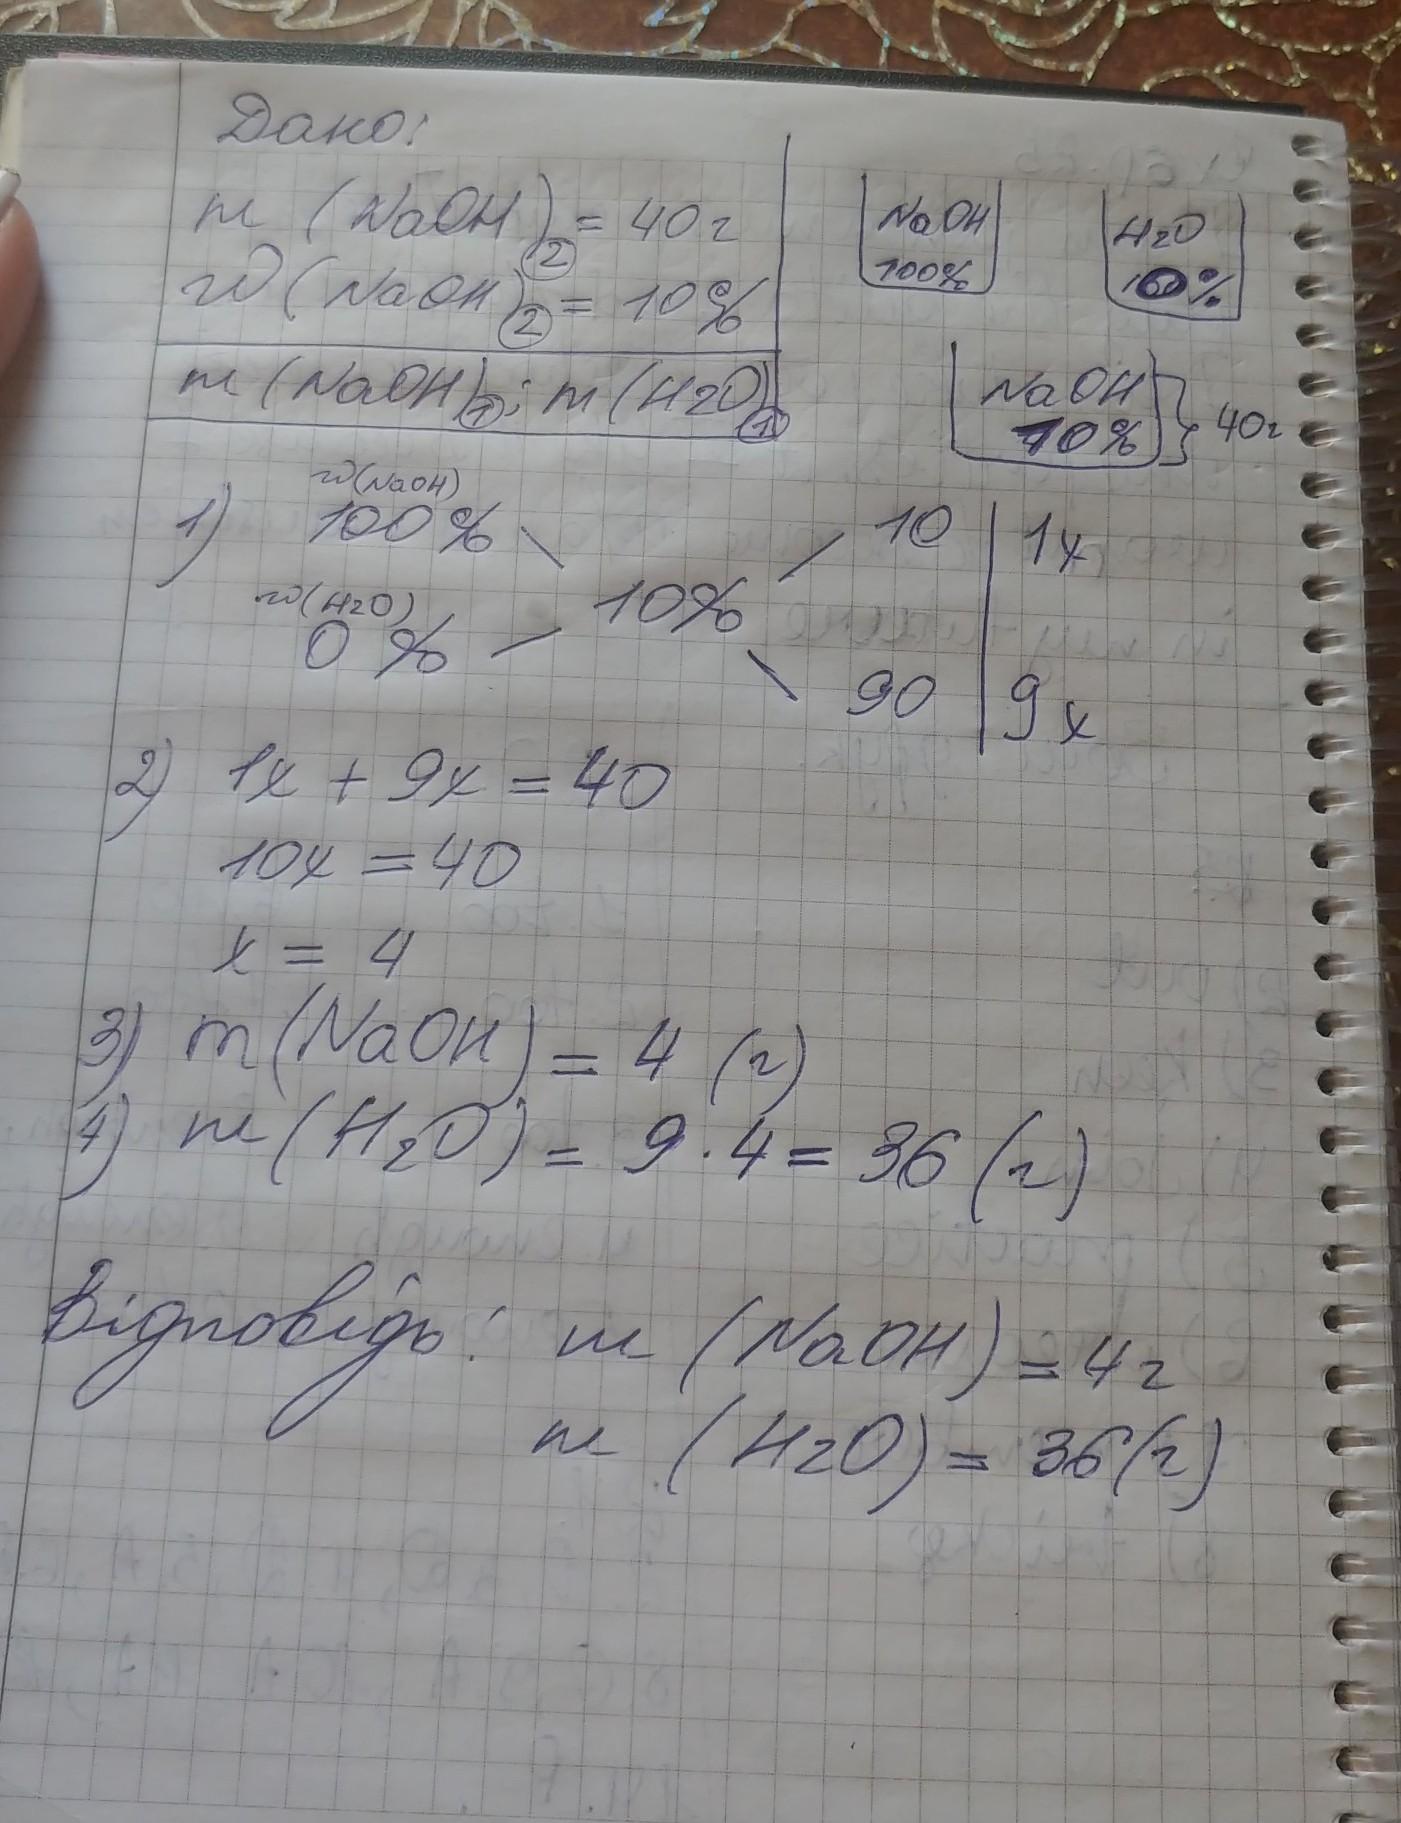 Дано:
m (NaOH)₂ = 40г
w (NaOH)₂ = 10%
m (NaOH)₁; m (H2O)₁
NaOH
100%
H2O
100%
NaOH
10%
40г
1) w(NaOH)
100% 10 1x
10%
w(H2O)
0% 90 9x
2) 1x + 9x = 40
10x = 40
x = 4
3) m (NaOH) = 4 (г)
4) m (H₂O) = 9 · 4 = 36 (г)
Відповідь: m (NaOH) = 4г
m (H2O) = 36(г)